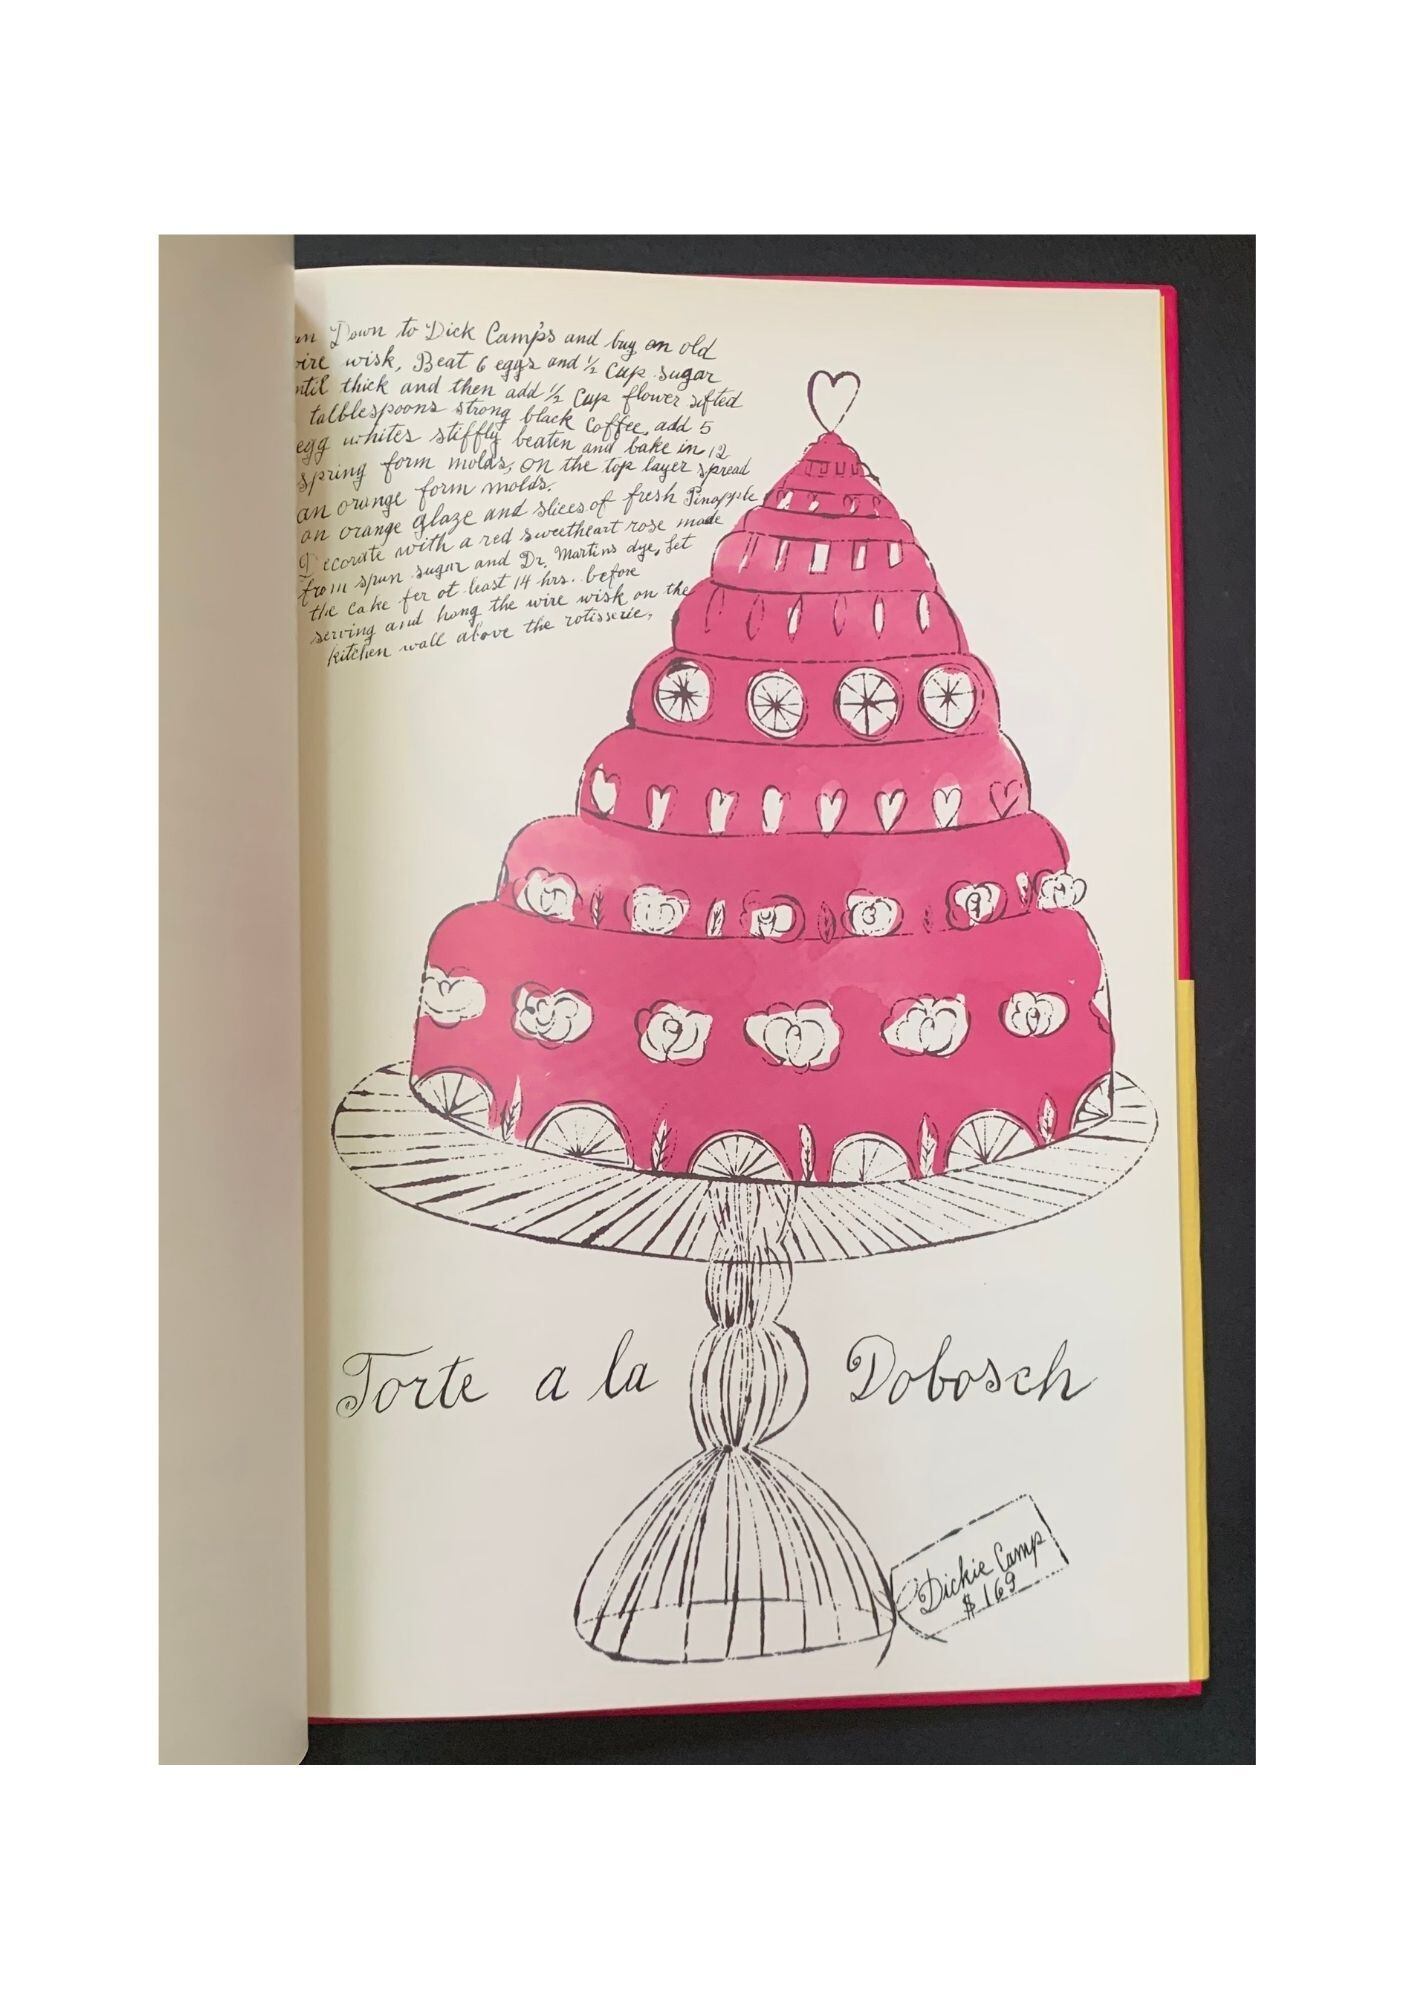 un Down to Dick Camp's and buy an old
wire wisk, Beat 6 eggs and ½ Cup sugar
ntil thick and then add ½ Cup flower sifted
talblespoons strong black Coffee, add 5
egg whites stiffly beaten and bake in 12
spring form molds, on the top layer spread
an orange form molds.
an orange glaze and slices of fresh Pinapple
Decorate with a red sweetheart rose made
from spun sugar and Dr. Martins dye, Let
the cake fer at least 14 hrs. before
serving and hang the wire wisk on the
kitchen wall above the rotisserie.
Torte a la Dobosch
Dickie Camp
$ 169